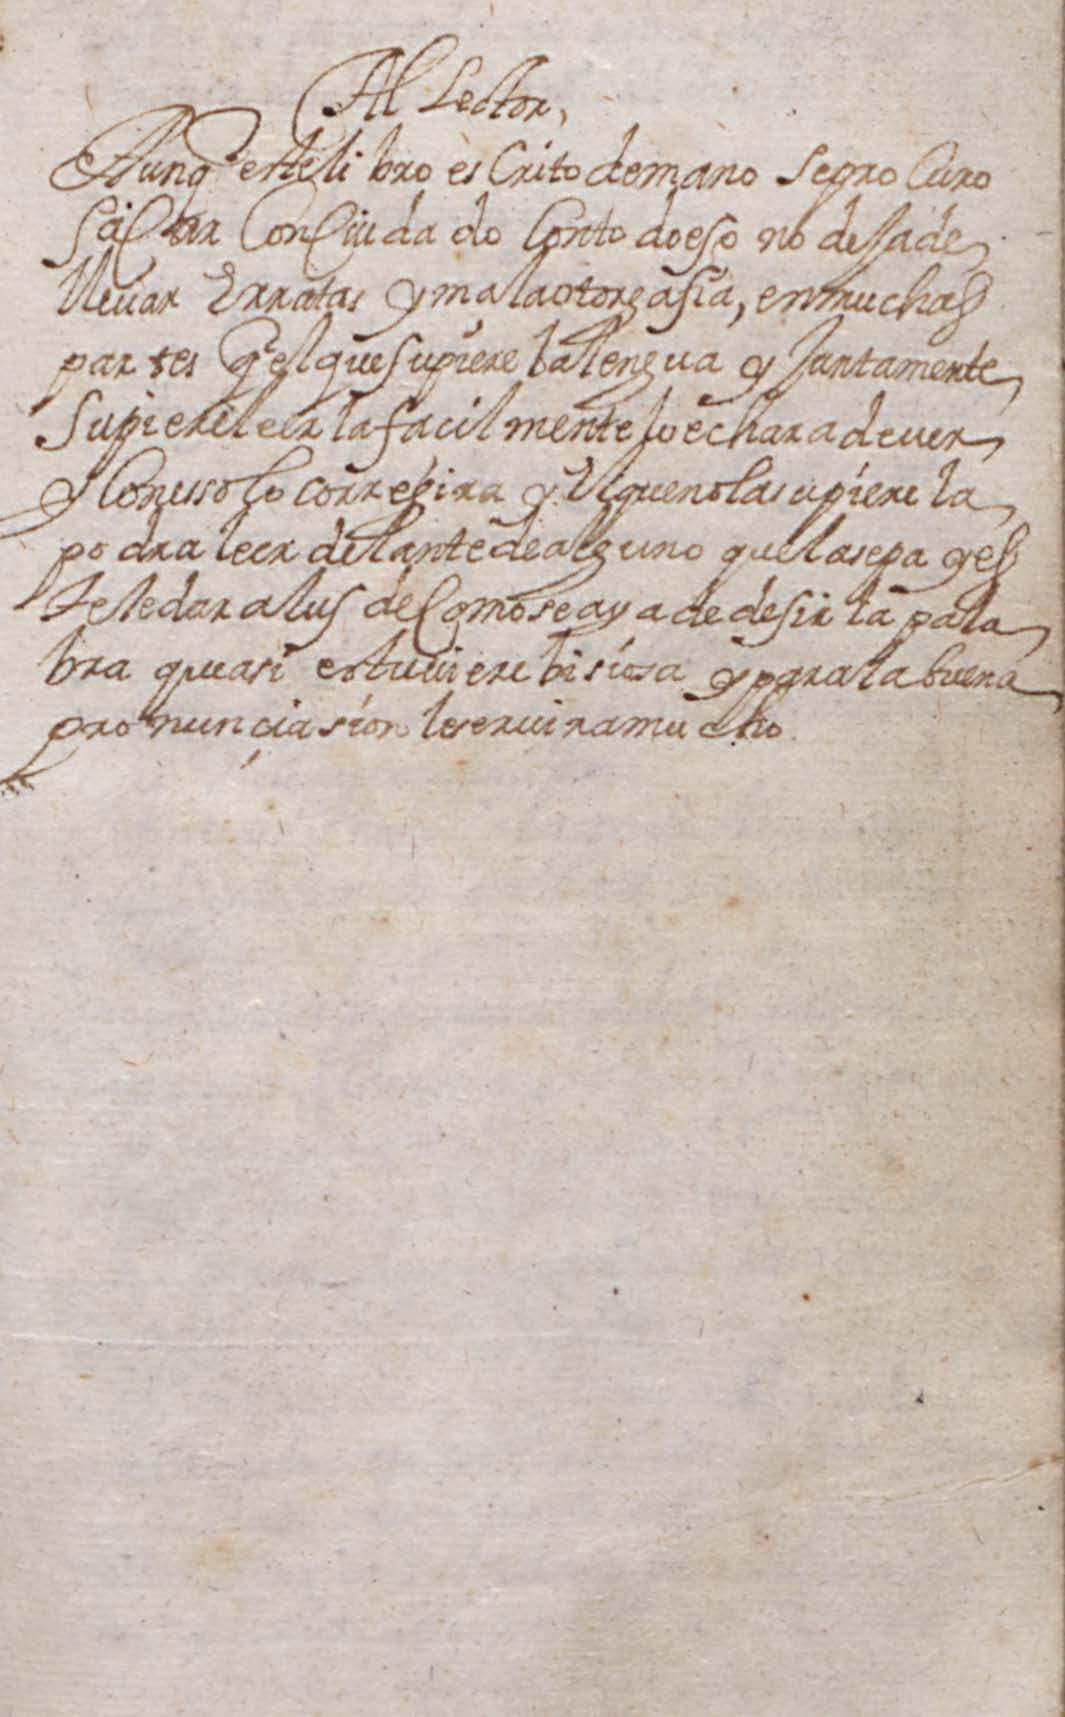 Al Lector,
Aunq̃ este li bro es Crito demano Se pro Curo
Sacar Con Cuida do Con to do eso no desa de
lleuar Erratas y mala otorgasia, en muchas
par tes q̃ el que supiere la lengua y Juntamente
Supiere leer la facil mente lo echara de uer
y Con esso lo corregira y El que no la supiere la
po dra leer delante de alguno que la sepa y es
te le dara lus de Como se aya de desir la pala
bra que asi estuuiere bisiosa y para la buena
pro nunciasion le seruira mucho